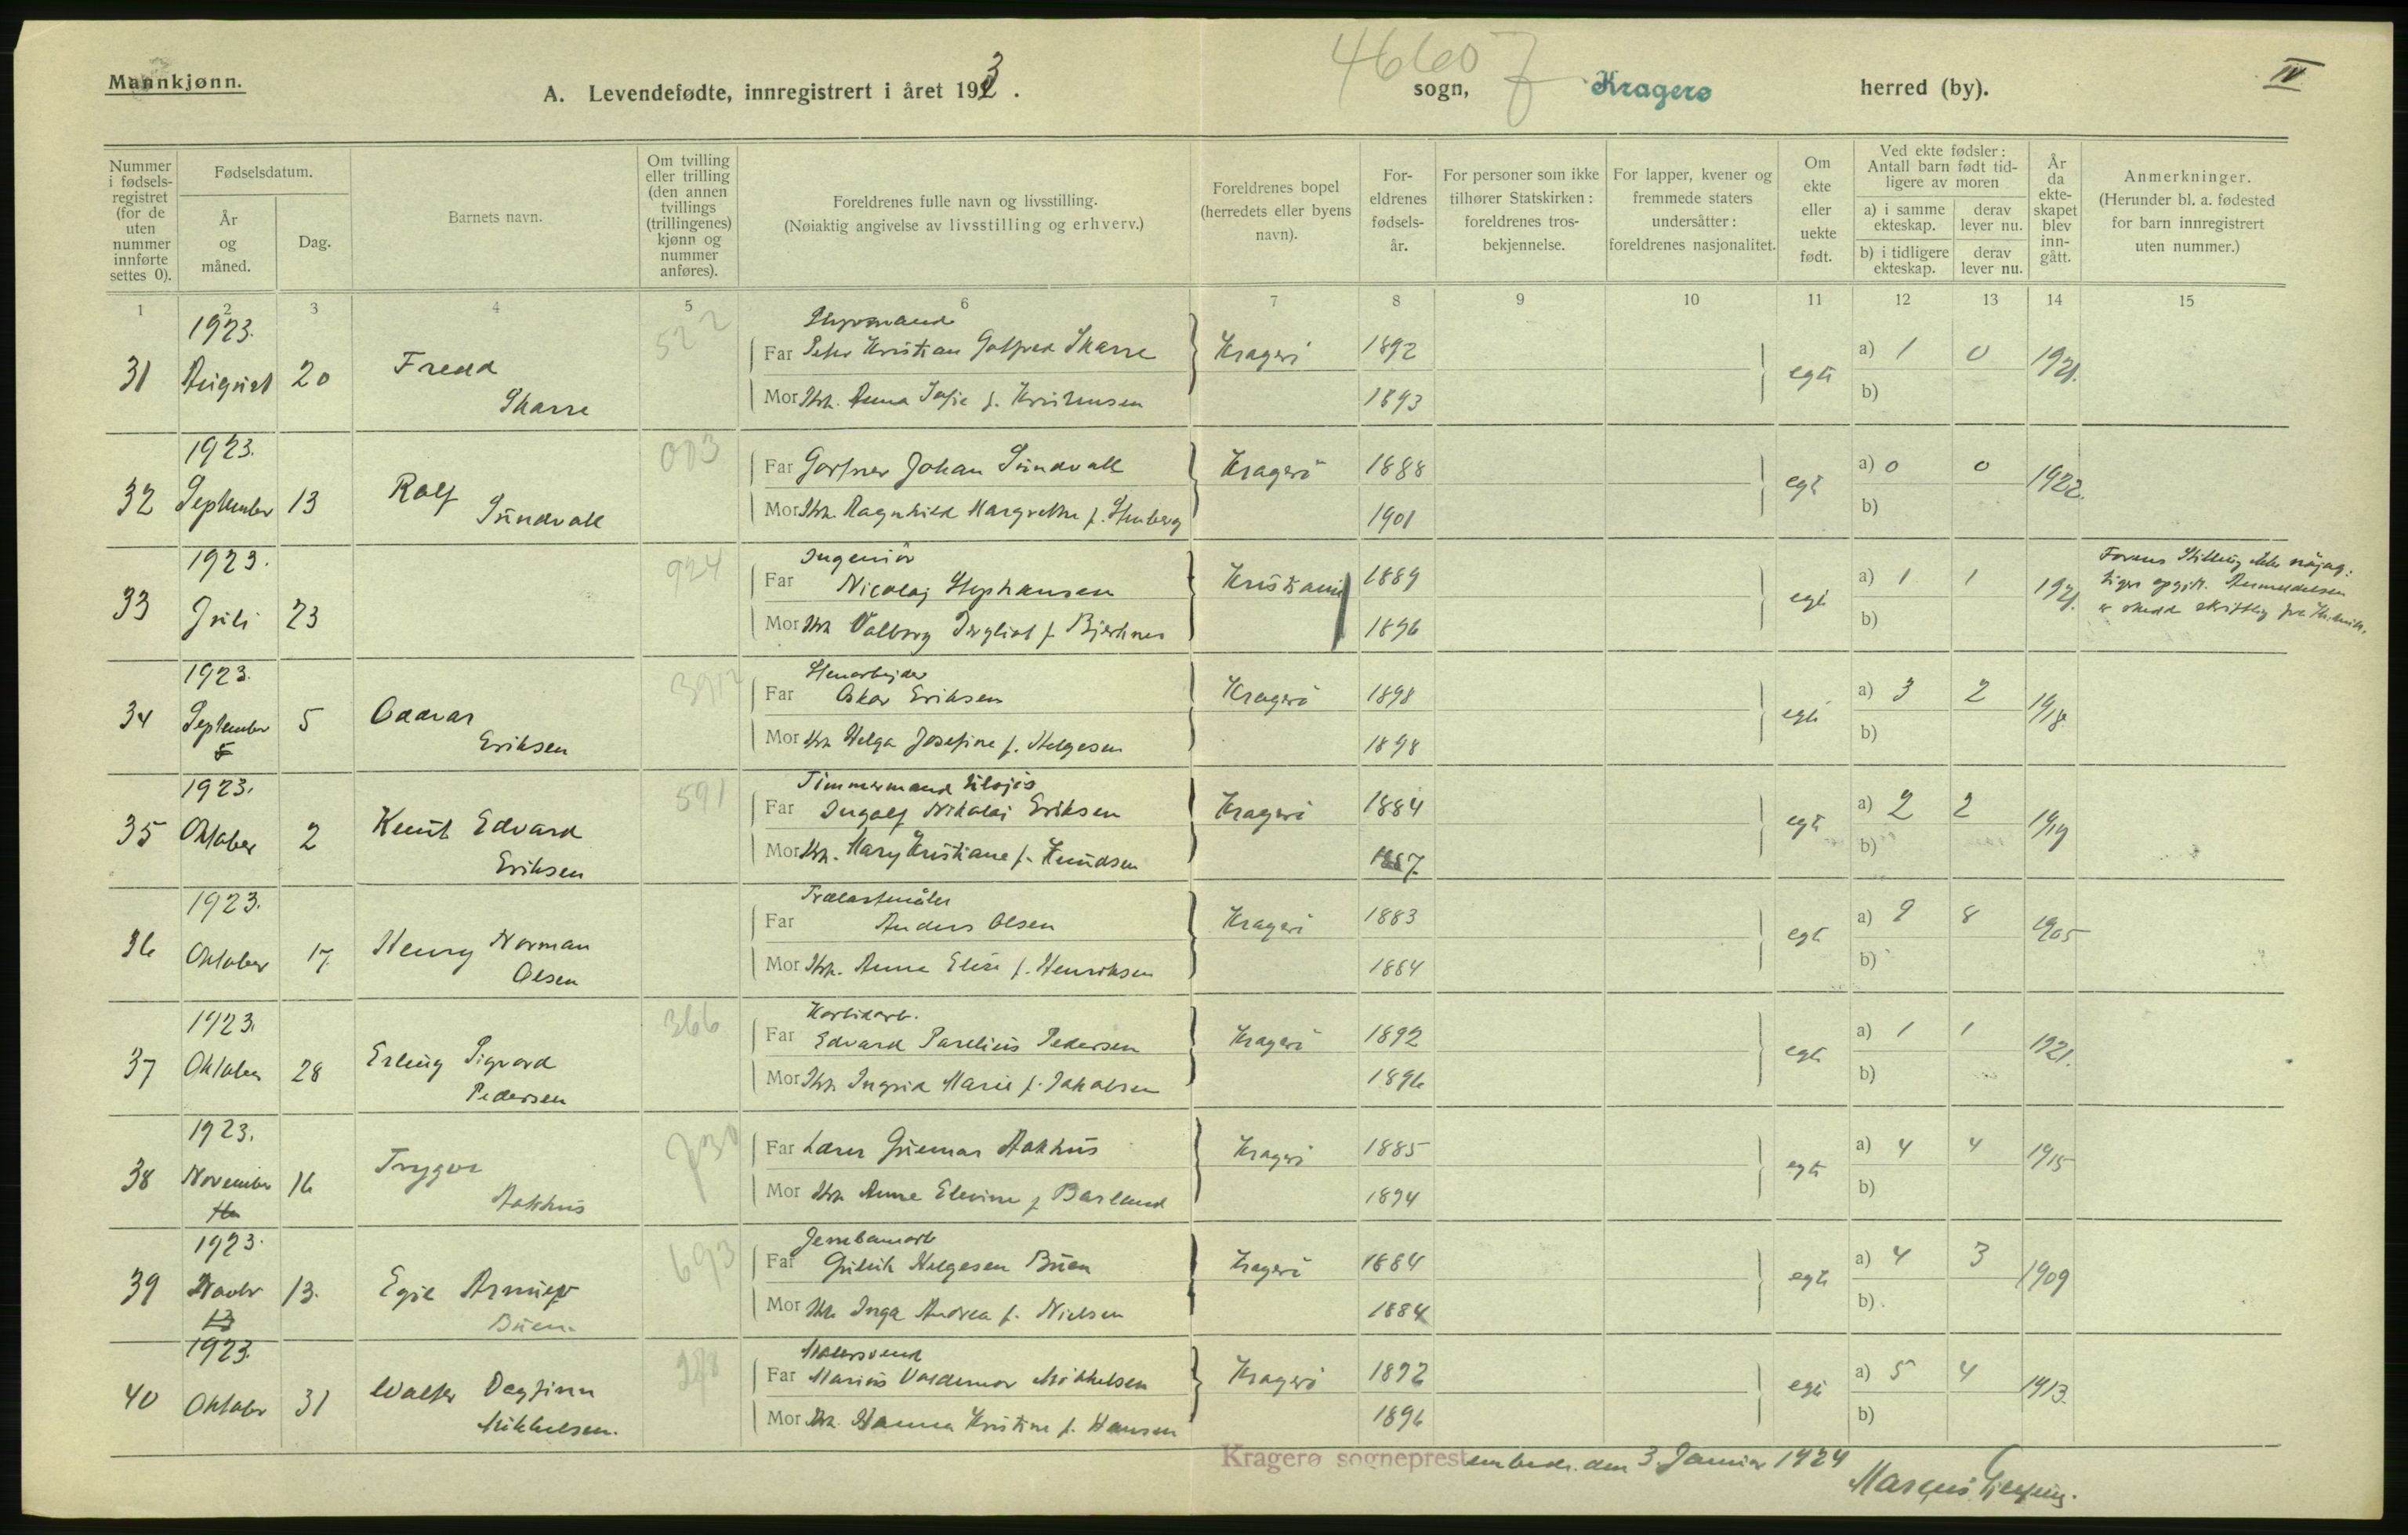 Mannkjønn.
A. Levendefødte, innregistrert i året 1923.
46607
sogn,
Kragerø
herred (by).
IV
Nummer i fødselsregistret (for de uten nummer innførte settes 0).
Fødselsdatum.
År og måned.
Dag.
Barnets navn.
Om tvilling eller trilling (den annen tvillings (trillingenes) kjønn og nummer anføres).
Foreldrenes fulle navn og livsstilling.
(Nøiaktig angivelse av livsstilling og erhverv.)
Foreldrenes bopel (herredets eller byens navn).
Foreldrenes fødselsår.
For personer som ikke tilhører Statskirken: foreldrenes trosbekjennelse.
For lapper, kvener og fremmede staters undersåtter: foreldrenes nasjonalitet.
Om ekte eller uekte født.
Ved ekte fødsler: Antall barn født tidligere av moren
a) i samme ekteskap.
derav lever nu.
b) i tidligere ekteskap.
derav lever nu.
År da ekteskapet blev inngått.
Anmerkninger.
(Herunder bl. a. fødested for barn innregistrert uten nummer.)
1 2 3 4 5 6 7 8 9 10 11 12 13 14 15
31 1923. August 20 Fredd Skarre 522
Styrmand
Far Peter Kristian Gotfred Skarre Kragerö 1892 egte a) 1 0 1921.
Mor Hr. Anna Sofie f. Kristensen 1893 b)
32 1923. September 13 Rolf Sundvall 003
Far Gartner Johan Sundvall Kragerö 1888 egte a) 0 0 1922.
Mor Hr. Ragnhild Margrethe f. Stenberg 1901 b)
33 1923. Juli 23 924
Ingeniör
Far Nicolaj Stephansen Kristiania 1889 egte a) 1 1 1921.
Mor Hr. Valborg Bergliot f. Bjerknes 1896 b)
Farens Stilling ikke nöjag:
tigere opgit. Anmeldelsen
er skedd skriftlig fra
34 1923. September 5 Oddvar Eriksen 3912
Stenarbejder
Far Oskar Eriksen Kragerö 1898 egte a) 3 2 1918.
Mor Hr. Helga Josefine f. Helgesen 1898 b)
35 1923. Oktober 2 Knut Edvard Eriksen 591
Timmermand tilsjøs
Far Ingolf Nikolai Eriksen Kragerö 1884 egte a) 2 2 1919
Mor Hr. Mary Kristiane f. Knudsen 1887 b)
36 1923. Oktober 17. Henry Norman Olsen
Trælastmåler
Far Anders Olsen Kragerö 1883 egte a) 9 8 1905
Mor Hr. Anna Elise f. Henriksen 1884 b)
37 1923. Oktober 28 Erling Sigvard Pedersen 366
Karbidarb.
Far Edvard Parelius Pedersen Kragerö 1892 egte a) 1 1 1921.
Mor Hr. Ingrid Marie f. Jakobsen 1896 b)
38 1923. November 16 Trygve Aakhus 730
Far Lærer Gunnar Aakhus Kragerö 1885 egte a) 4 4 1915
Mor Hr. Anne Elevine f. Barland 1894 b)
39 1923. Novbr 13. Egil Arnulf Buen 693
Jernbanearb
Far Gullik Helgesen Buen Kragerö 1884 egte a) 4 3 1909
Mor Hr. Inga Andrea f. Nielsen 1884 b)
40 1923. Oktober 31 Walter Dagfinn Mikkelsen. 278
Malersvend
Far Marius Valdemar Mikkelsen Kragerö 1892 egte a) 5 4 1913.
Mor Hr. Hanna Kristine f. Hansen 1896 b)
Kragerø sogneprestembede. den 3. Januar 1924
Marcus